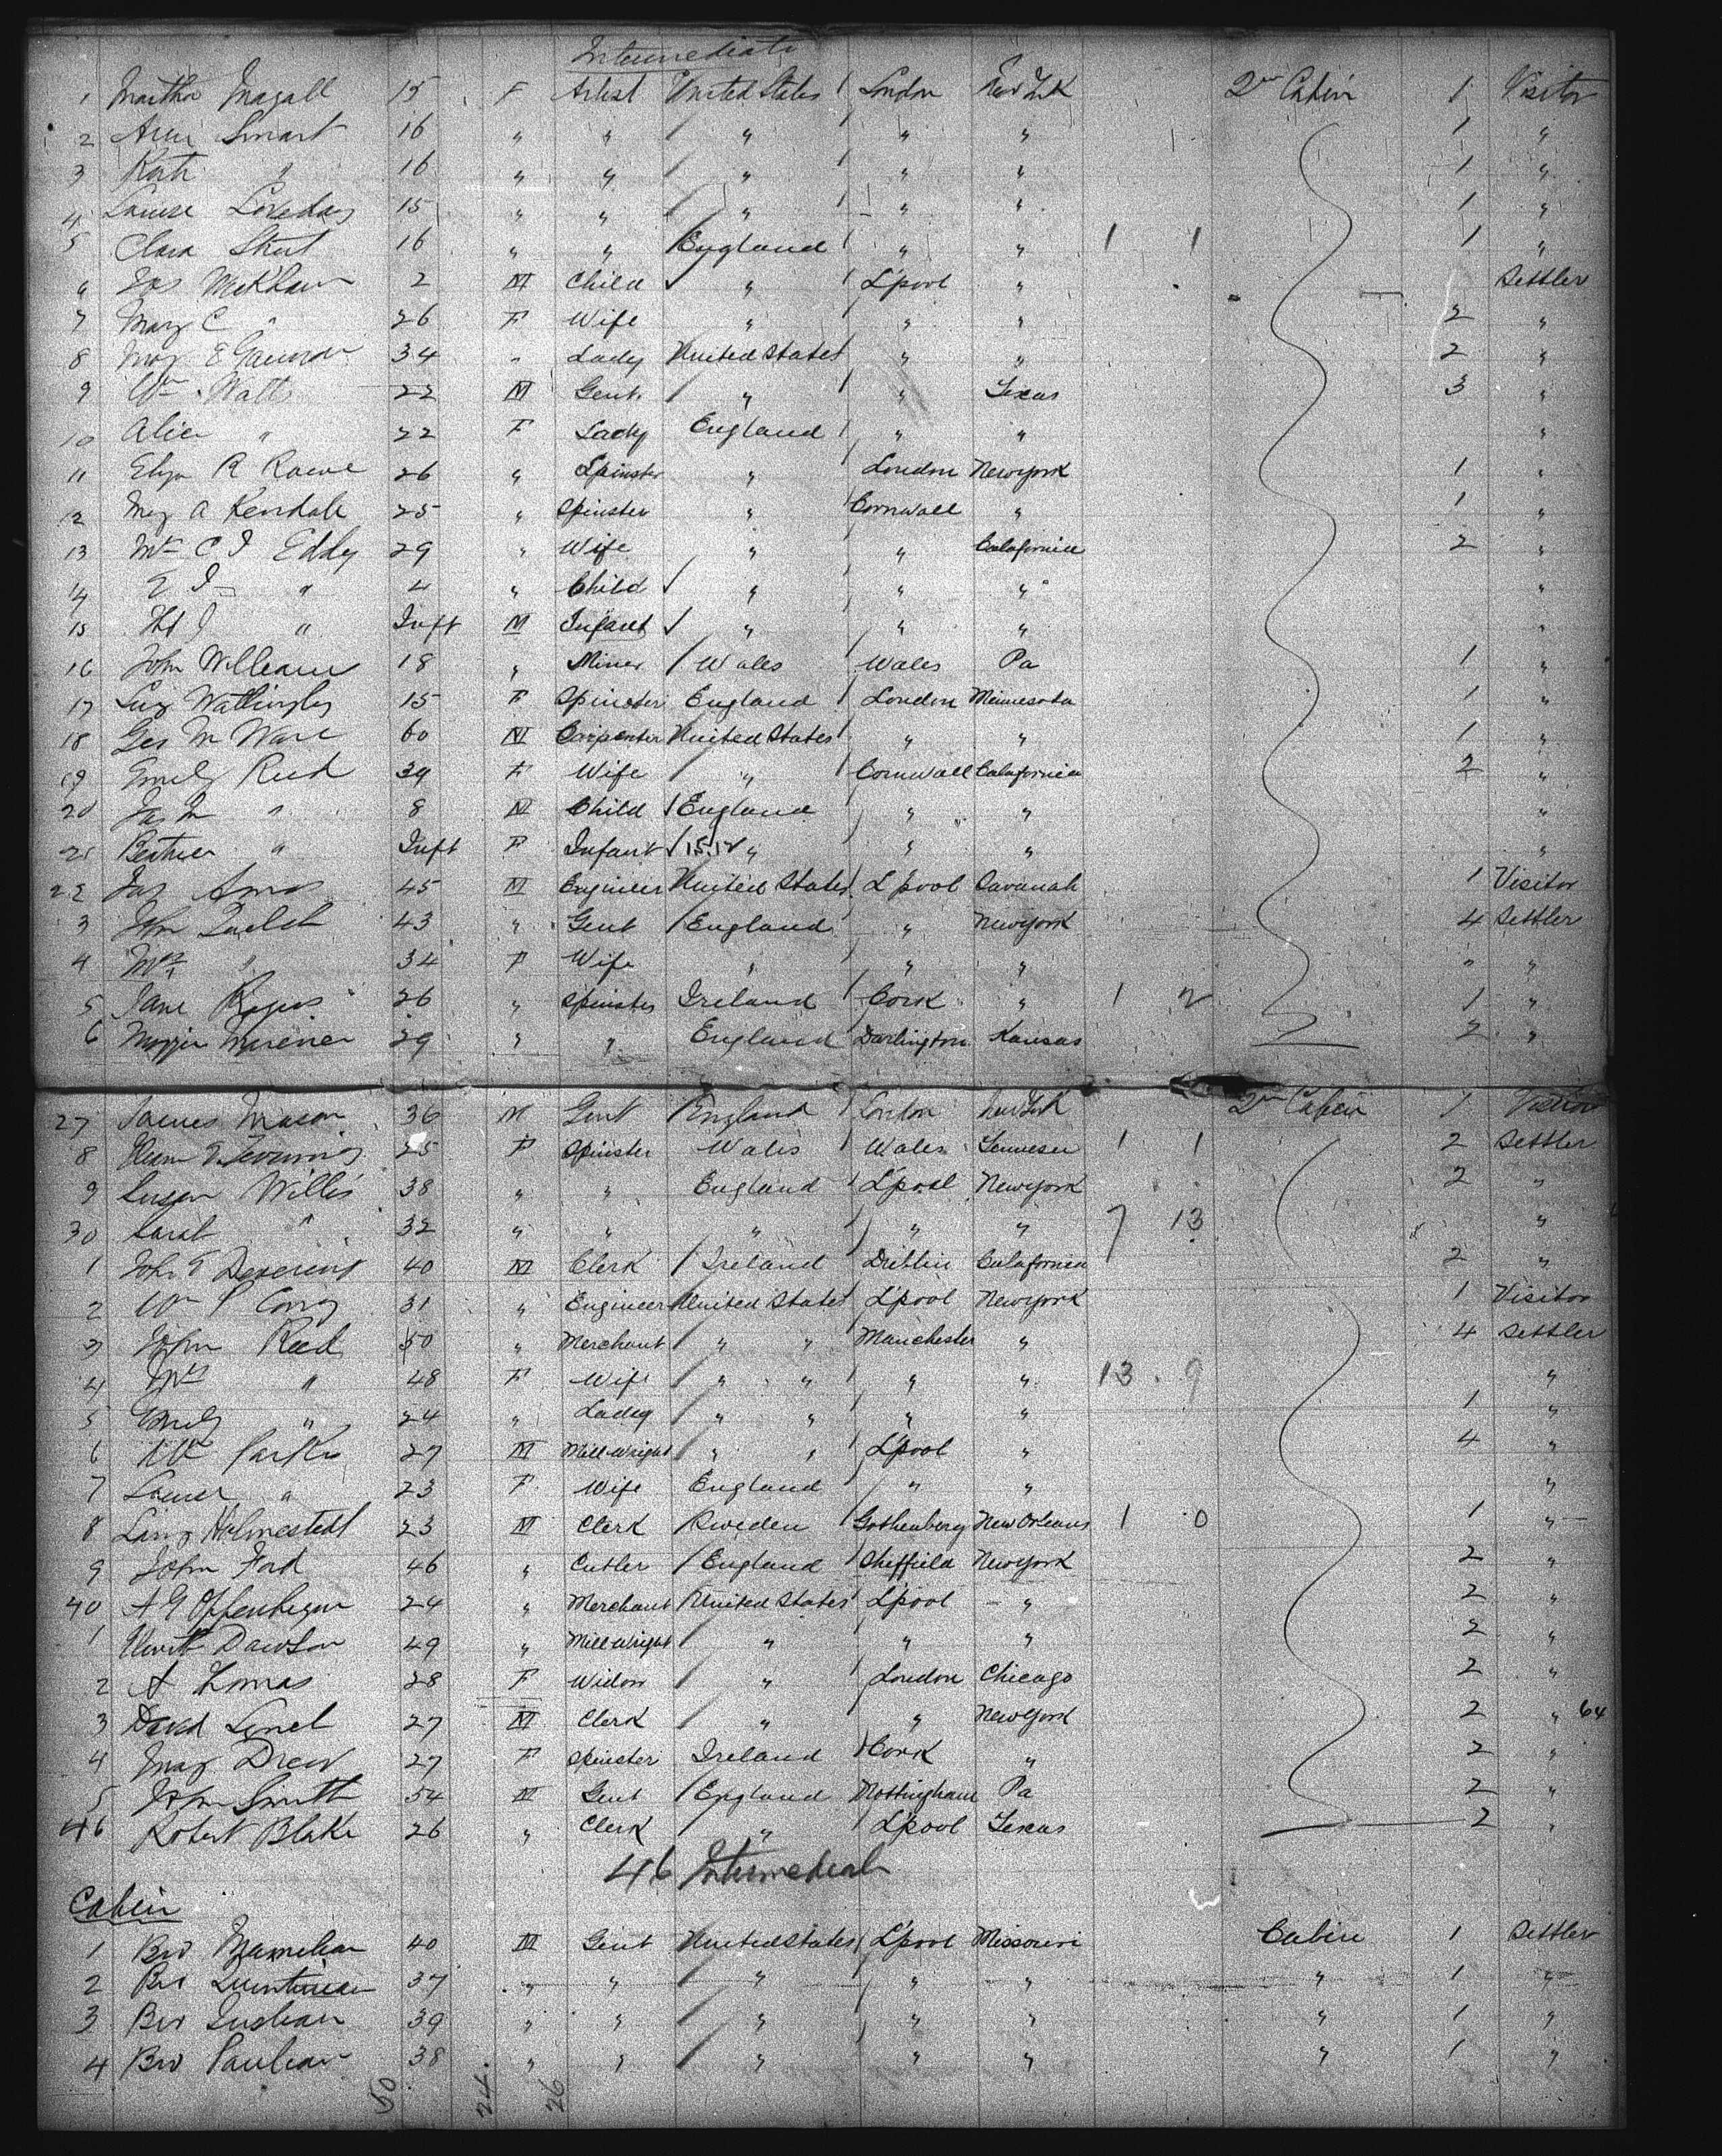 Intermediate
1 Martha Magall 15 F Artist United States London New York 2nd Cabin 1 Visitor
2 Smart 16 " " " " " 1 "
3 Kate " 16 " " " " " 1 "
4 Louise Loveday 15 " " " " " 1 "
5 Clara 16 " " England " " 1 1 1 "
6 Jos 2 M Child " L'pool " Settler
7 Mary C " 26 F Wife " " " 2 "
8 34 " Lady United States " " 2 "
9 Wm Watts 22 M Gent " " Texas 3 "
10 Alice " 22 F Lady England " " "
11 Eliza R Rowe 26 " Spinster " London Newyork 1 "
12 Mary A Kendall 25 " Spinster " Cornwall " 1 "
13 Mrs C J Eddy 29 " Wife " " Calafornia 2 "
14 E J " 4 " Child " " " "
15 " Inft M Infant " " " "
16 John Williams 18 " Miner Wales Wales Pa 1 "
17 Lucy 15 F Spinster England London Minnesota 1 "
18 Geo M Ware 60 M Carpenter United States " " 1 "
19 Emily Reed 39 F Wife " Cornwall Calafornia 2 "
20 Jas M " 8 M Child England " " "
21 Beatrice " Inft F Infant " " " "
22 Jas Amos 45 M Engineer United States L'pool Savanah 1 Visitor
3 John 43 " Gent England " Newyork 4 Settler
4 Mrs " 34 F Wife " " " " "
5 Jane Rogers 26 " Spinster Ireland Cork " 1 2 1 "
6 29 " " England Darlington Kansas 2 "
27 James Mason 36 M Gent England London New York 2nd Cabin 1 Visitor
8 25 F Spinster Wales Wales 1 1 2 Settler
9 Susan Willis 38 " " England L'pool Newyork 2 "
30 Sarah " 32 " " " " " 7 13 "
1 John T 40 M Clerk Ireland Dublin Calafornia 2 "
2 Wm P 31 " Engineer United States L'pool Newyork 1 Visitor
3 John Reed 50 " Merchant " " Manchester " 4 Settler
4 Mrs " 48 F Wife " " " " 13 9 "
5 Emily " 24 " Lady " " " " 1 "
6 Wm Parks 27 M Mill Wright " " L'pool " 4 "
7 " 23 F Wife England " " "
8 Holmestedt 23 M Clerk Sweden Gothenberg New Orleans 1 0 1 "
9 John Ford 46 " Cutler England Sheffield Newyork 2 "
40 A G 24 " Merchant United States L'pool " 2 "
1 Dawson 49 " Mill Wright " " " 2 "
2 A 28 F Widow " London Chicago 2 "
3 David 27 M Clerk " " Newyork 2 " 64
4 Mary Drew 27 F Spinster Ireland Cork " 2 "
5 John Smith 54 M Gent England Nottingham Pa 2 "
46 Robert Blake 26 " Clerk " L'pool Texas 2 "
46 Intermediate
Cabin
1 Bro 40 M Gent United States L'pool Missouri Cabin 1 Settler
2 Bro 37 " " " " " " 1 "
3 Bro 39 " " " " " " 1 "
4 Bro Paulian 38 " " " " " " 1 "
50 24 26